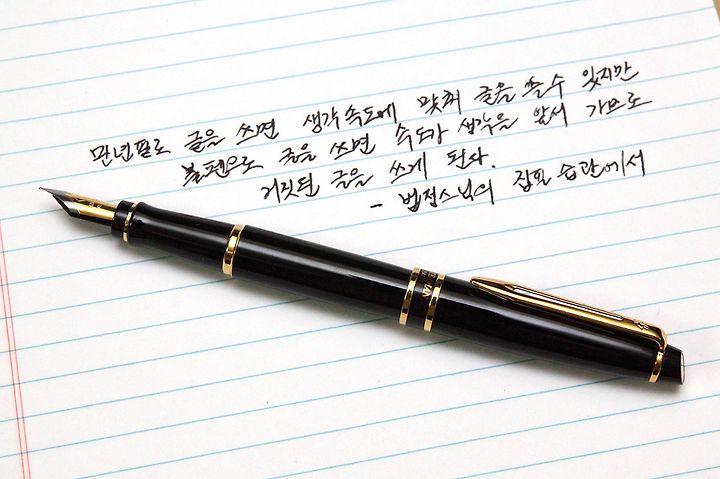 만년필로 글을 쓰면 생각속도에 맞춰 글을 쓸수 있지만
볼펜으로 글을 쓰면 속도가 생각을 앞서 가므로
거짓된 글을 쓰게 된다.
- 법정스님의 집필 습관에서